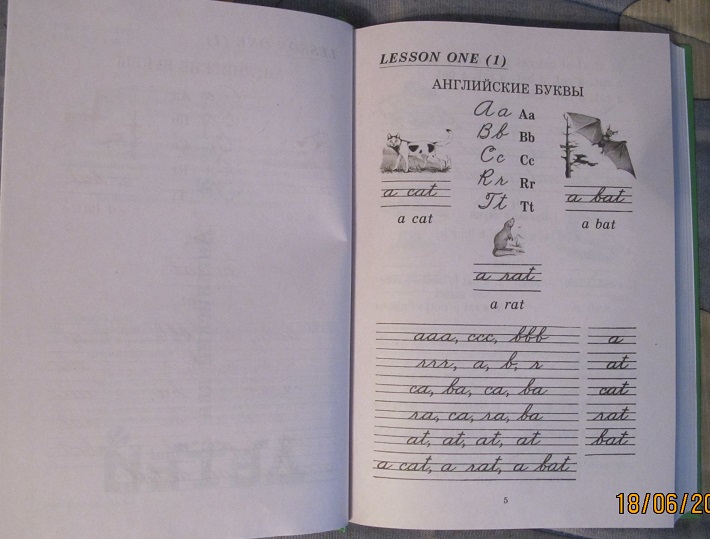 LESSON ONE (1)
АНГЛИЙСКИЕ БУКВЫ
Aa Aa
Bb Bb
Cc Cc
Rr Rr
Tt Tt
a cat
a cat
a bat
a bat
a rat
a rat
aaa, ccc, bbb
rrr, a, b, r
ca, ba, ca, ba
ra, ca, ra, ba
at, at, at, at
a cat, a rat, a bat
a
at
cat
rat
bat
5
18/06/20